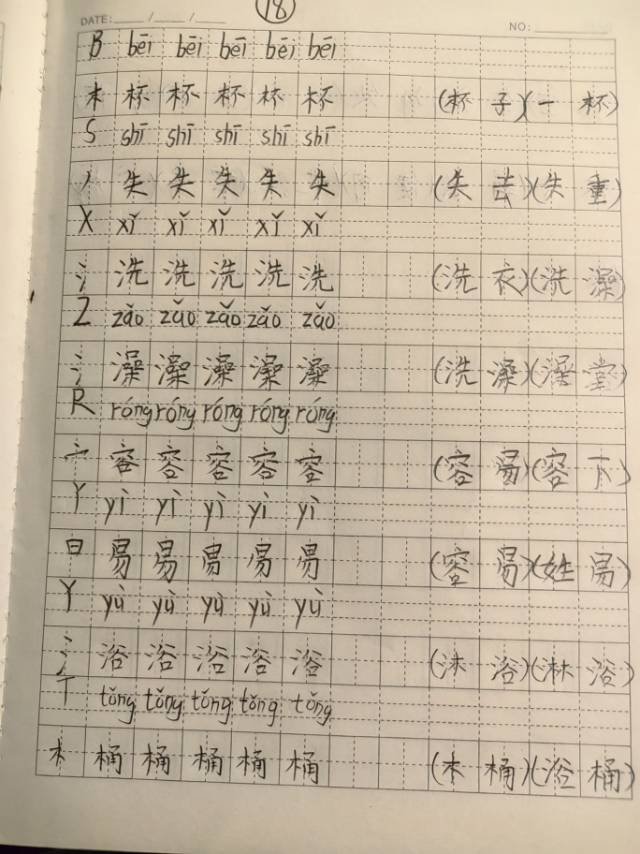 DATE: ___/___/___ 18 NO: ___
B bēi bēi bēi bēi bēi
木 杯 杯 杯 杯 杯 (杯子)(一杯)
S shī shī shī shī shī
丿 失 失 失 失 失 (失去)(失重)
X xǐ xǐ xǐ xǐ xǐ
氵 洗 洗 洗 洗 洗 (洗衣)(洗澡)
Z zǎo zǎo zǎo zǎo zǎo
氵 澡 澡 澡 澡 澡 (洗澡)(澡堂)
R róng róng róng róng róng
宀 容 容 容 容 容 (容易)(容下)
Y yì yì yì yì yì
日 易 易 易 易 易 (容易)(姓易)
Y yù yù yù yù yù
氵 浴 浴 浴 浴 浴 (沐浴)(淋浴)
T tǒng tǒng tǒng tǒng tǒng
木 桶 桶 桶 桶 桶 (木桶)(浴桶)